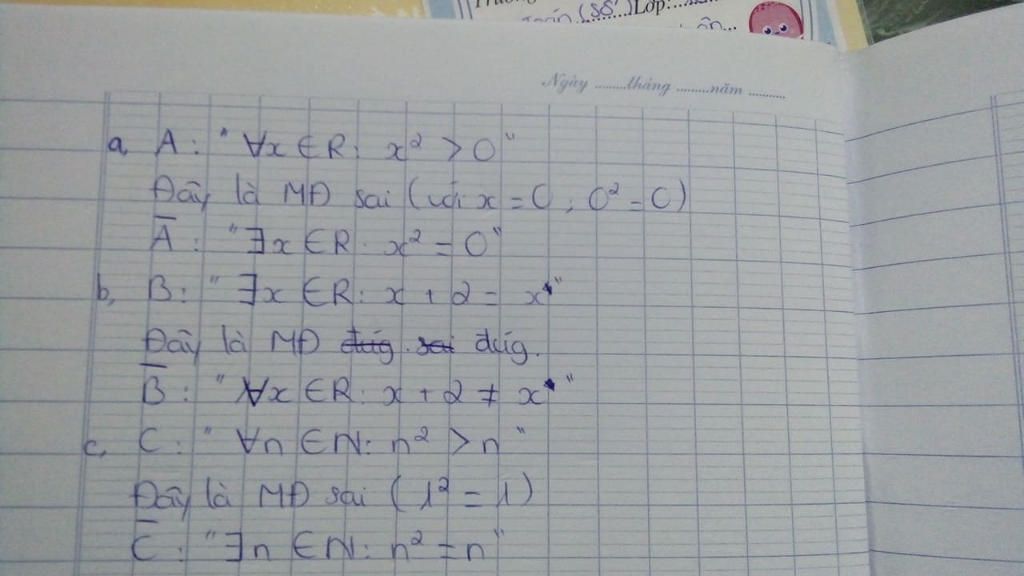 Trường
Toán (Số) Lớp:
Ngày ........tháng ........năm .........
a, A: " ∀x ∈ R: x² > 0 "
Đây là MĐ sai (với x = 0, 0² = 0)
A̅: " ∃x ∈ R: x² = 0 "
b, B: " ∃x ∈ R: x + 2 = x "
Đây là MĐ đúg.
B̅: " ∀x ∈ R: x + 2 ≠ x "
c, C: " ∀n ∈ N: n² > n "
Đây là MĐ sai (1² = 1)
C̅: " ∃n ∈ N: n² = n "